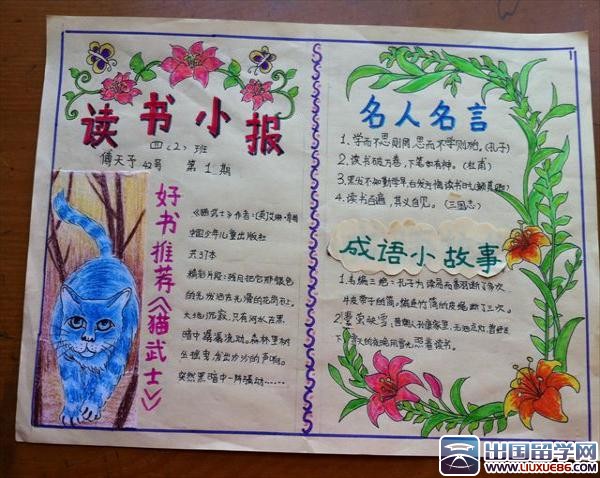 读书小报
四(2)班
傅天予 42号 第1期
好书推荐《猫武士》
《猫武士》作者:(英)艾琳·
中国少年儿童出版社
共37本
精彩片段:残月把它那银色
的光发洒在光滑的花岗石上。
大地沉寂,只有河水在黑
暗中潺潺流动。森林里树
叶摇曳,发出沙沙的声响。
突然黑暗中一阵骚动……
名人名言
1、学而不思则罔,思而不学则殆。(孔子)
2、读书破万卷,下笔如有神。(杜甫)
3、黑发不知勤学早,白发方悔读书迟。(颜真卿)
4、读书百遍,其义自见。(三国志)
成语小故事
1、韦编三绝:孔子为读易而翻断了多次
牛皮带子的简。编连竹简的皮绳断了三次。
2、萤萤映雪:
夜读书。
出国留学网
WWW.LIUXUE86.COM